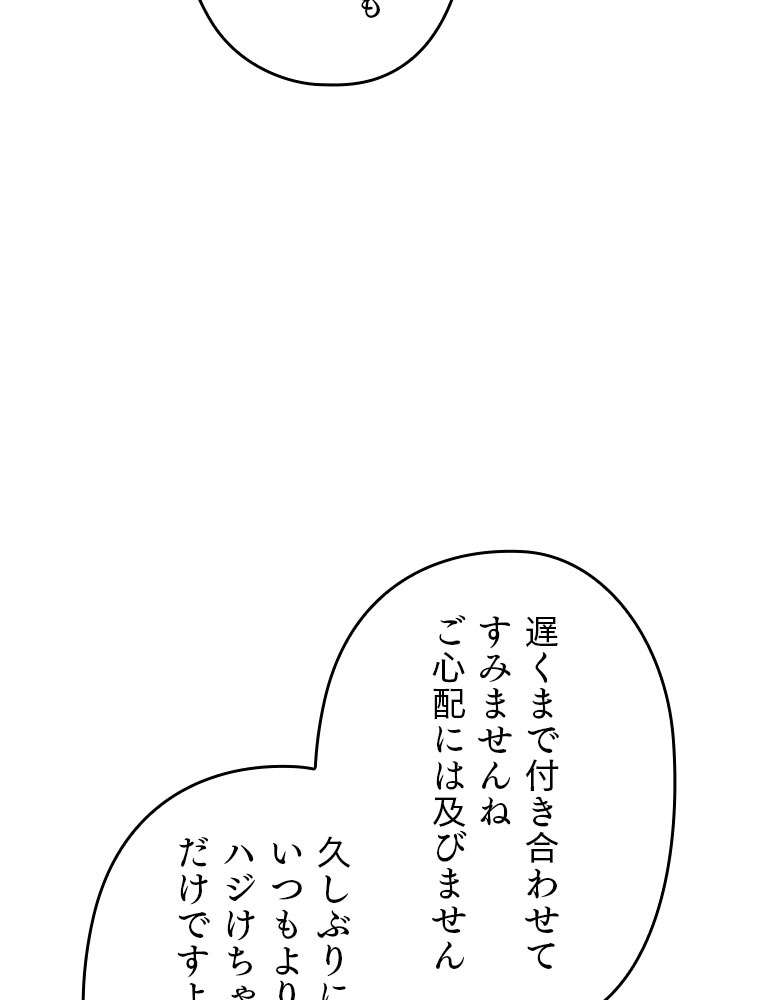 も
遅くまで付き合わせて
すみませんね
ご心配には及びません
久しぶりに
いつもより
ハジけちゃ
だけですよ